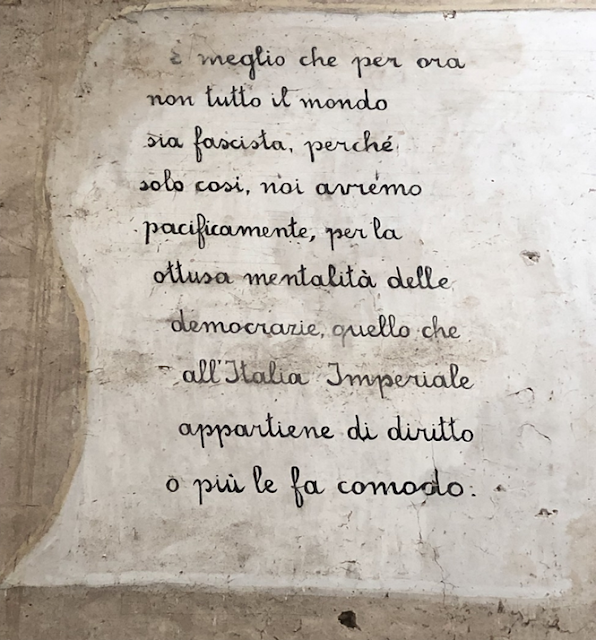 è meglio che per ora
non tutto il mondo
sia fascista, perché
solo cosi, noi avremo
pacificamente, per la
ottusa mentalità delle
democrazie, quello che
all'Italia Imperiale
appartiene di diritto
o più le fa comodo.